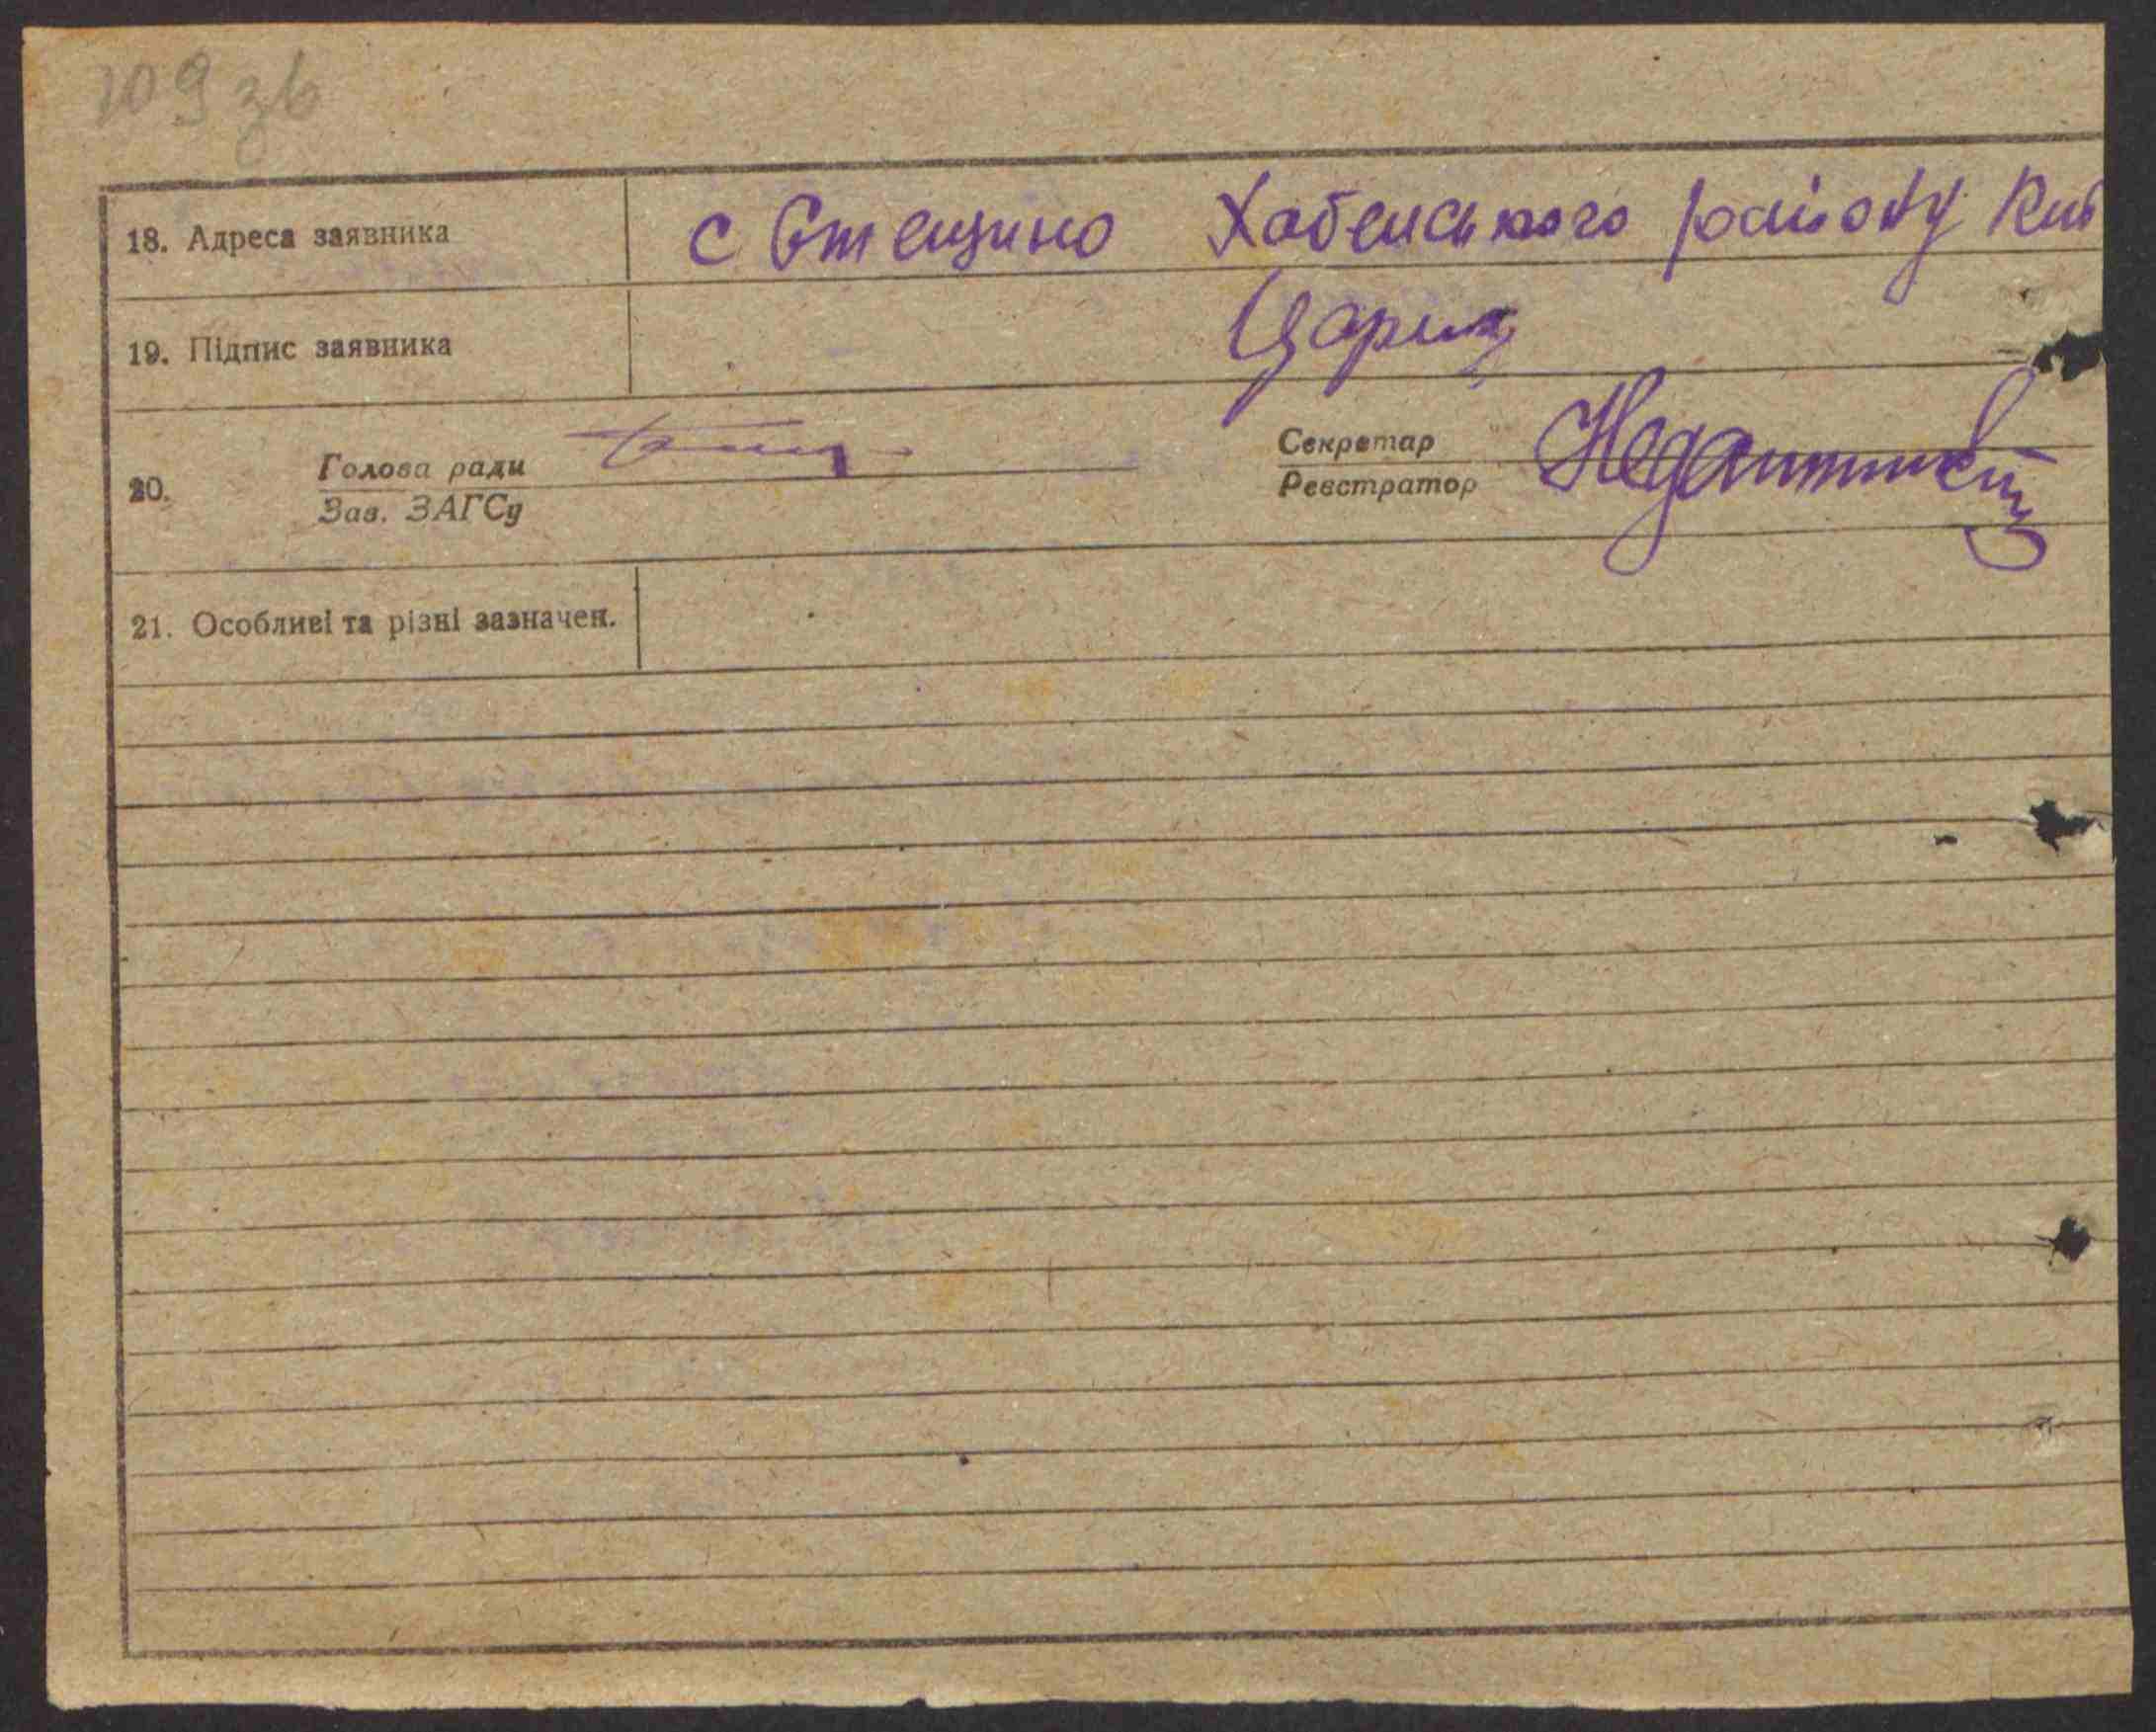 109 зв
18. Адреса заявника с Стещино Хабенського району Київ
19. Підпис заявника Цариц
20. Голова ради Секретар
Зав. ЗАГСу Реєстратор
21. Особливі та різні зазначен.